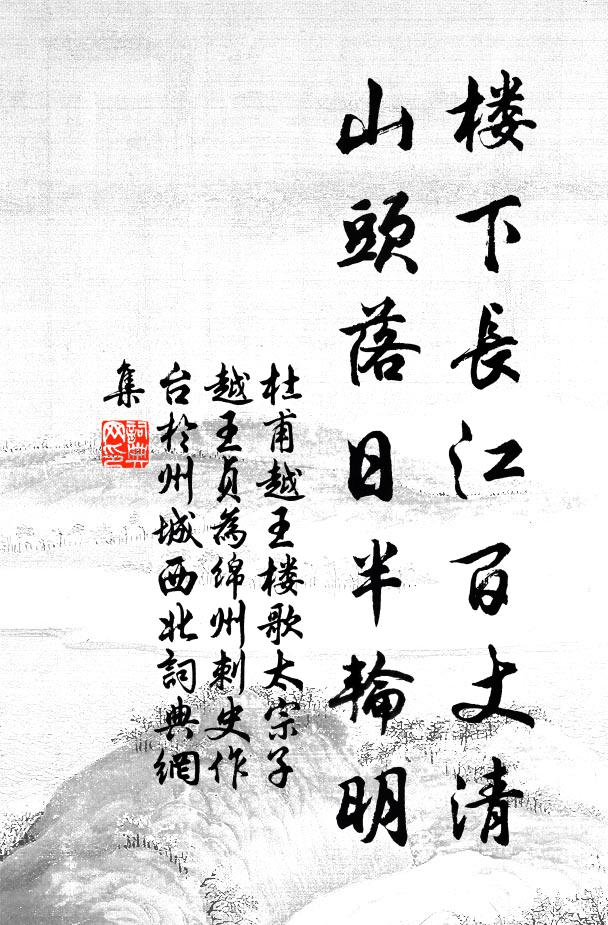 楼下長江百丈清
山頭落日半輪明
杜甫越王楼歌太宗子
越王貞為綿州刺史作
台於州城西北詞典網
集
詞典網